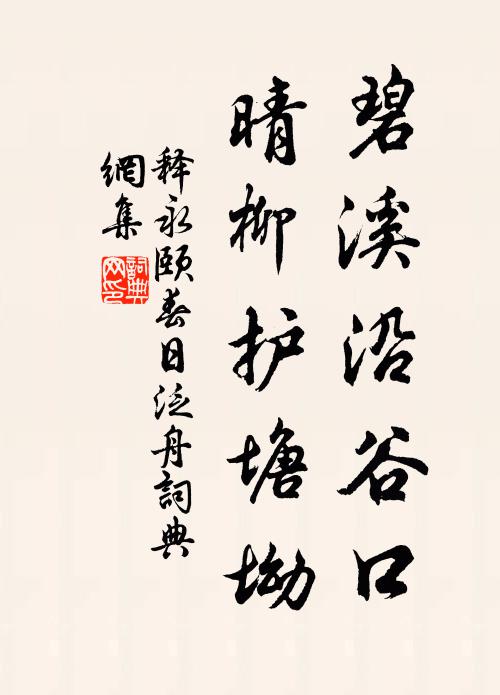 碧溪沿谷口
晴柳护塘坳
释永颐春日泛舟詞典
網集
詞典
网印